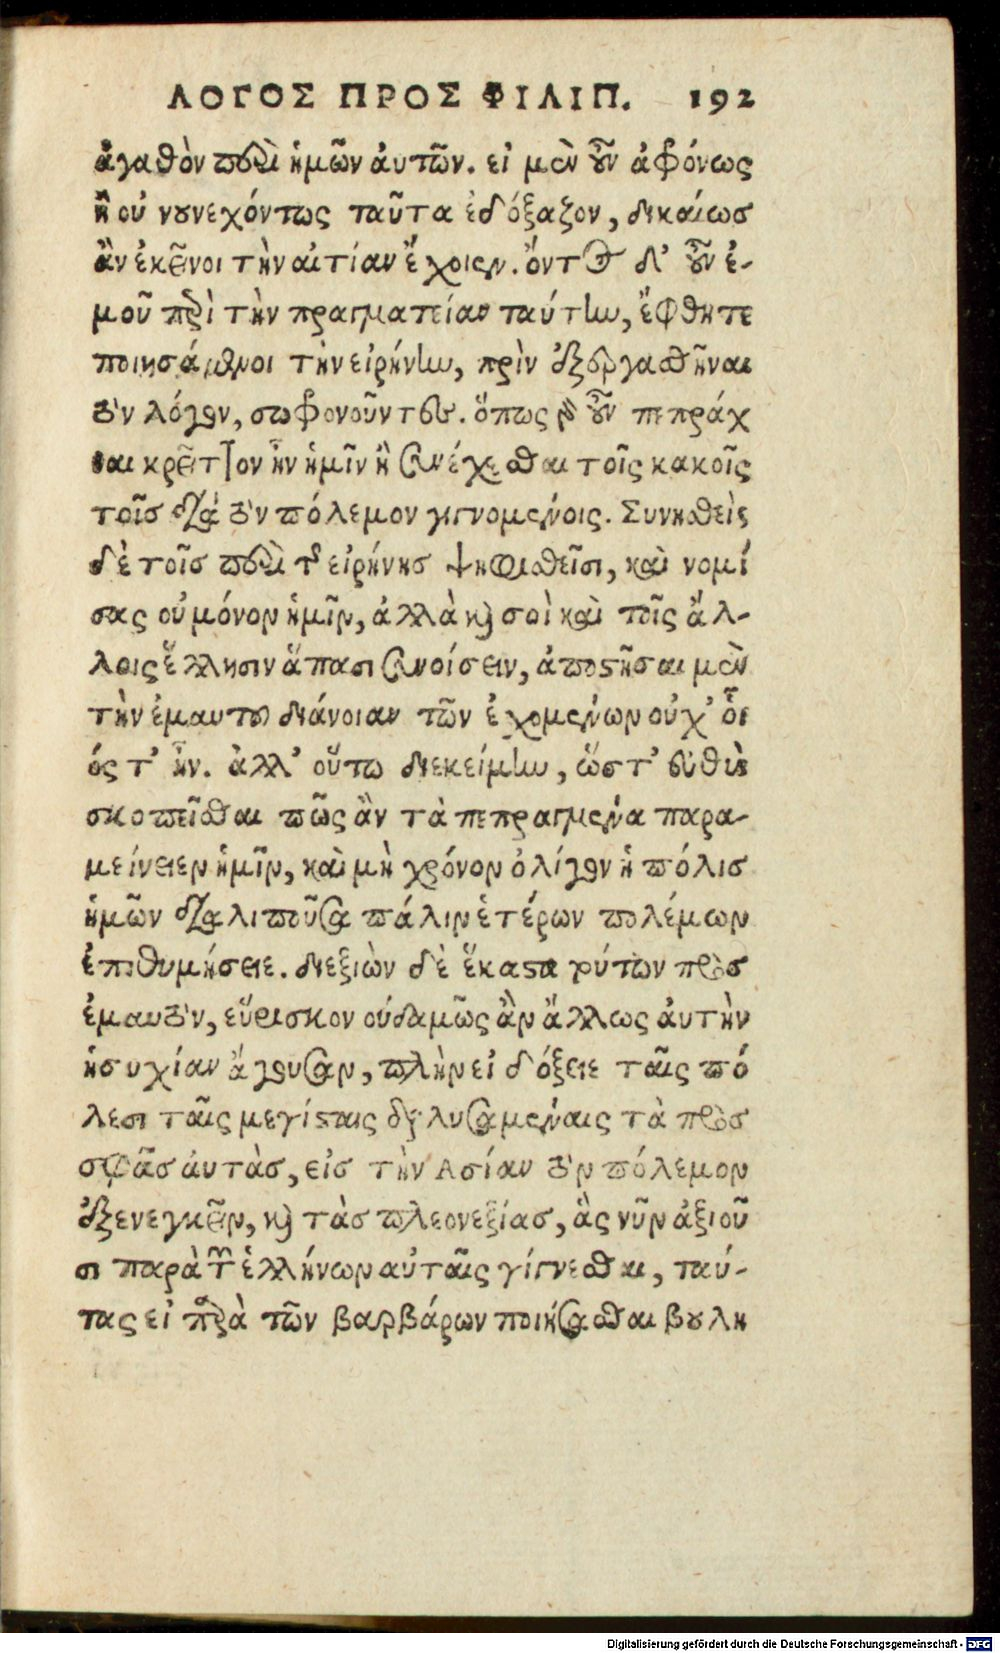 ΛΟΓΟΣ ΠΡΟΣ ΦΙΛΙΠ. 192
ἀγαθὸν περὶ ἡμῶν ἀυτῶν. εἰ μὲν οὖν ἀφόνως
ἢ οὐ νουνεχόντως ταῦτα ἐδόξαζον, δικαίως
ἂν ἐκεῖνοι τὴν αἰτίαν ἔχοιεν. ὄντος δ' οὖν ἐ-
μοῦ περὶ τὴν πραγματείαν ταύτην, ἔφθητε
ποιησάμενοι τὴν εἰρήνην, πρὶν ἐξεργασθῆναι
τὸν λόγον, σωφονοῦντες. ὅπως γὰρ οὖν πεπράχ
θαι κρεῖττον ἦν ἡμῖν ἢ συνέχεσθαι τοῖς κακοῖς
τοῖς διὰ τὸν πόλεμον γιγνομένοις. Συνησθεὶς
δὲ τοῖς περὶ τῆς εἰρήνης ψηφισθεῖσι, καὶ νομί
σας οὐ μόνον ἡμῖν, ἀλλὰ καὶ σοὶ καὶ τοῖς ἄλ-
λοις ἕλλησιν ἅπασι συνοίσειν, ἀποστῆσαι μὲν
τὴν ἐμαυτοῦ διάνοιαν τῶν ἐχομένων οὐχ' οἷ
ός τ' ἦν. ἀλλ' οὕτω διεκείμην, ὥστ' εὐθὺς
σκοπεῖσθαι πῶς ἂν τὰ πεπραγμένα παρα-
μείνειεν ἡμῖν, καὶ μὴ χρόνον ὀλίγον ἡ πόλις
ἡμῶν διαλιποῦσα πάλιν ἑτέρων πολέμων
ἐπιθυμήσειε. διεξιὼν δὲ ἕκαστα τούτων πρὸς
ἐμαυτὸν, εὕρισκον οὐδαμῶς ἂν ἄλλως ἀυτὴν
ἡσυχίαν ἄγουσαν, πλὴν εἰ δόξειε ταῖς πό
λεσι ταῖς μεγίσταις διαλυσαμέναις τὰ πρὸς
σφᾶς ἀυτὰς, εἰς τὴν Ασίαν τὸν πόλεμον
ἐξενεγκεῖν, καὶ τὰς πλεονεξίας, ἃς νῦν ἀξιοῦ
σι παρὰ τῶν ἑλλήνων αὐταῖς γίγνεσθαι, ταύ-
τας εἰ παρὰ τῶν βαρβάρων ποιήσασθαι βουλη
Digitalisierung gefördert durch die Deutsche Forschungsgemeinschaft - DFG